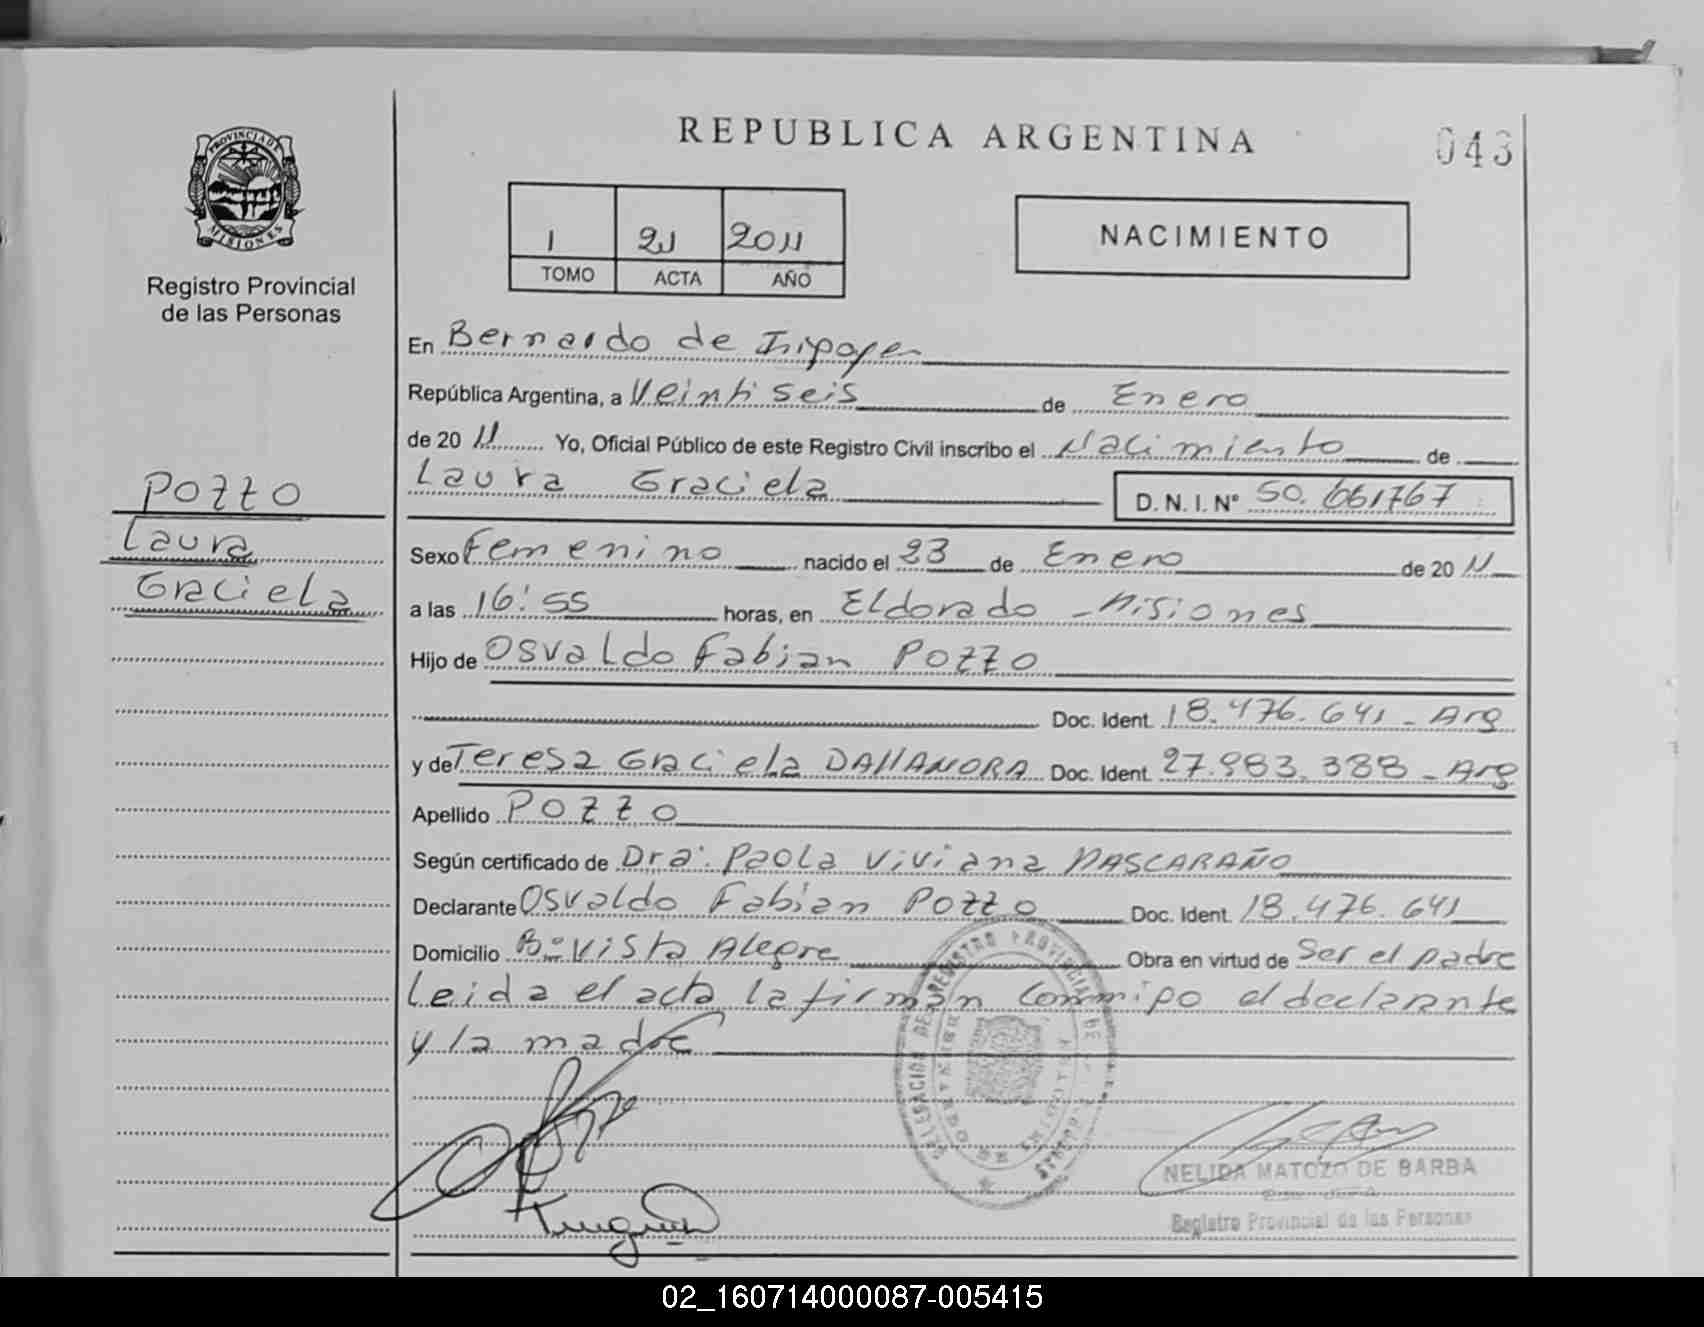 REPUBLICA ARGENTINA
043
PROVINCIA DE
MISIONES
Registro Provincial
de las Personas
1 21 2011
TOMO ACTA AÑO
NACIMIENTO
En Bernardo de Irigoyen
República Argentina, a Veintiseis de Enero
de 2011 Yo, Oficial Público de este Registro Civil inscribo el Nacimiento de
Laura Graciela D.N.I. Nº 50.661767
POZZO
Laura
Graciela
Sexo Femenino nacido el 23 de Enero de 2011
a las 16:55 horas, en Eldorado - Misiones
Hijo de Osvaldo Fabian POZZO
Doc. Ident. 18.476.641 - Arg
y de Teresa Graciela DALLANORA Doc. Ident. 27.983.388 - Arg
Apellido POZZO
Según certificado de Dra. Paola Viviana MASCARAÑO
Declarante Osvaldo Fabian POZZO Doc. Ident. 18.476.641
Domicilio Bº Vista Alegre Obra en virtud de Ser el padre
Leida el acta la firman conmigo el declarante
y la madre
DELEGACION DEL REGISTRO PROVINCIAL DE LAS PERSONAS
NELIDA MATOZO DE BARBA
Registro Provincial de las Personas
02_160714000087-005415